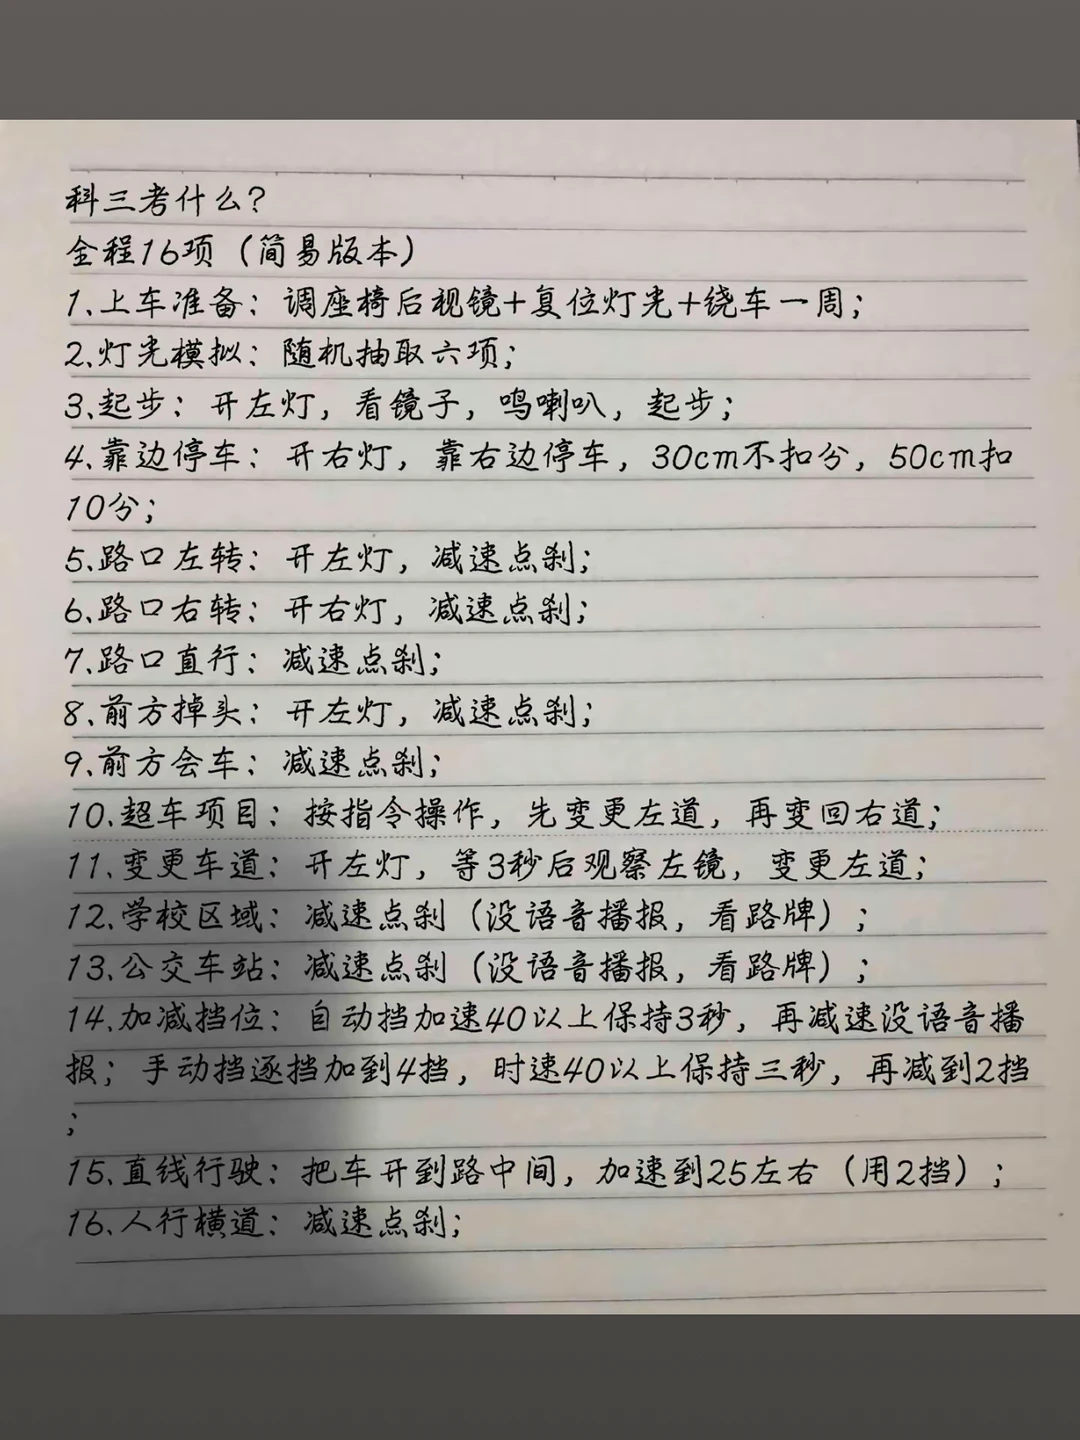 科三考什么?
全程16项（简易版本）
1、上车准备：调座椅后视镜+复位灯光+绕车一周；
2、灯光模拟：随机抽取六项；
3、起步：开左灯，看镜子，鸣喇叭，起步；
4、靠边停车：开右灯，靠右边停车，30cm不扣分，50cm扣
10分；
5、路口左转：开左灯，减速点刹；
6、路口右转：开右灯，减速点刹；
7、路口直行：减速点刹；
8、前方掉头：开左灯，减速点刹；
9、前方会车：减速点刹；
10、超车项目：按指令操作，先变更左道，再变回右道；
11、变更车道：开左灯，等3秒后观察左镜，变更左道；
12、学校区域：减速点刹（没语音播报，看路牌）；
13、公交车站：减速点刹（没语音播报，看路牌）；
14、加减挡位：自动挡加速40以上保持3秒，再减速没语音播
报；手动挡逐挡加到4挡，时速40以上保持三秒，再减到2挡
；
15、直线行驶：把车开到路中间，加速到25左右（用2挡）；
16、人行横道：减速点刹；